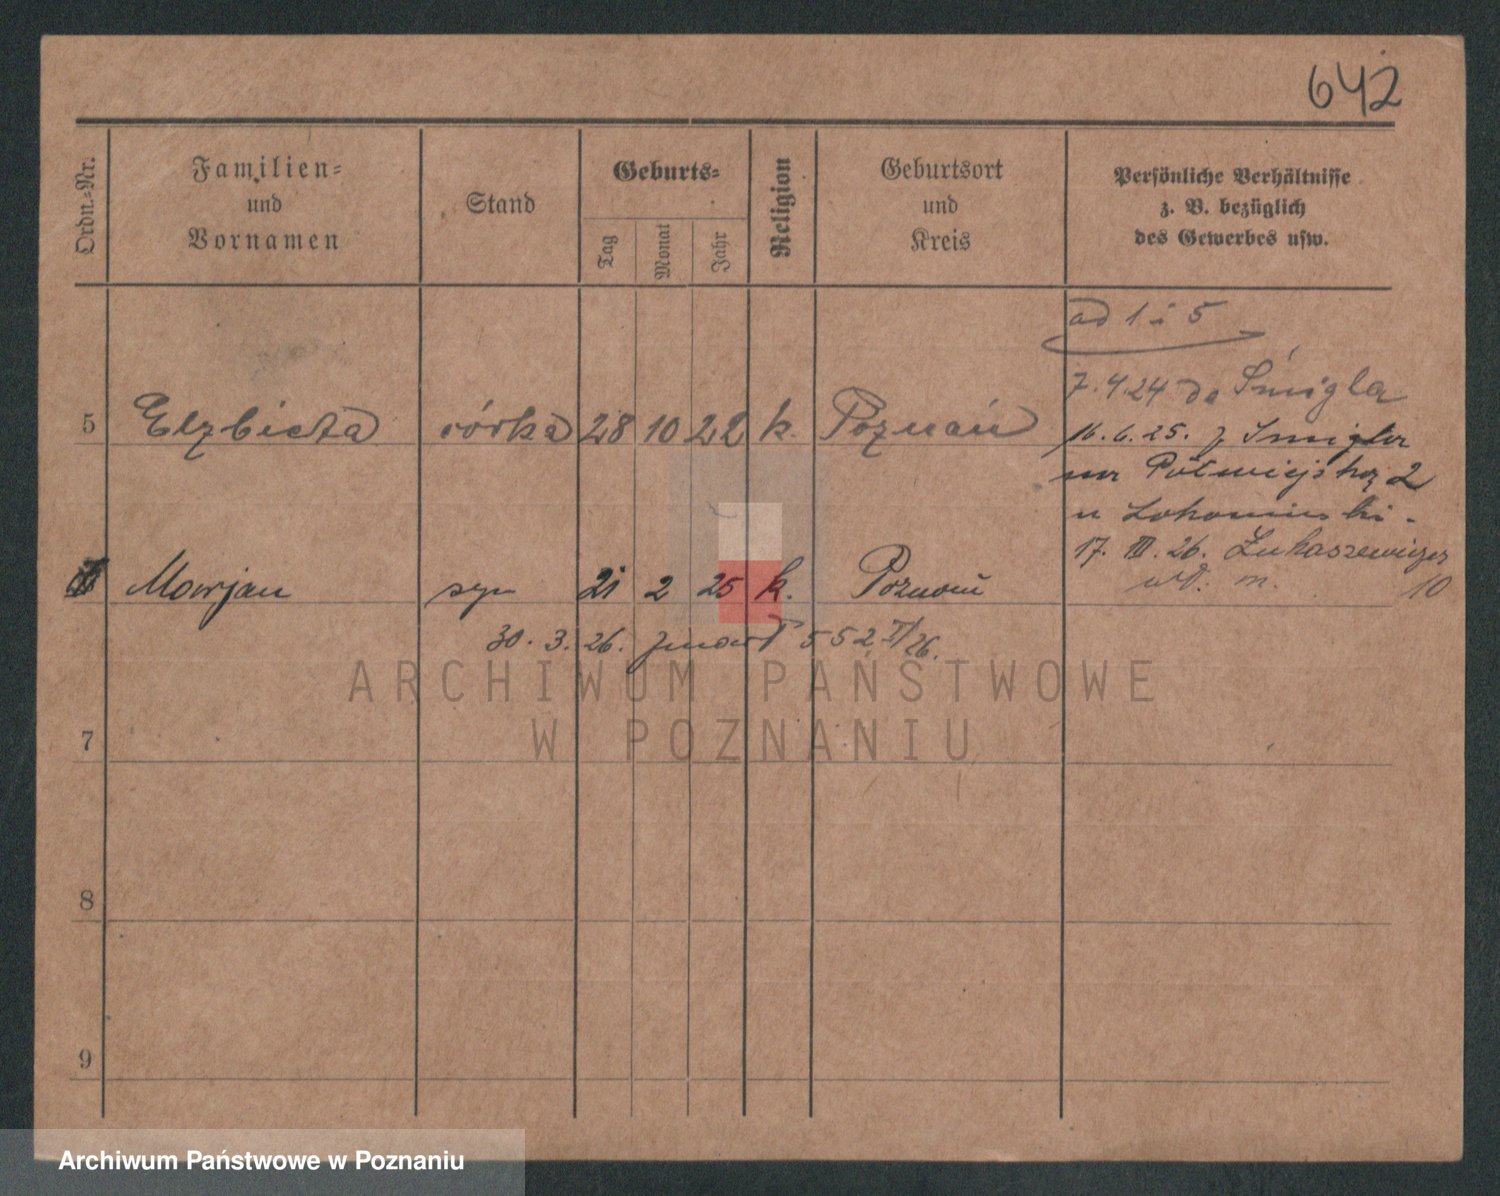 642
Ordn.-Nr.
Familien-
und
Vornamen
Stand
Geburts-
Tag
Monat
Jahr
Religion
Geburtsort
und
Kreis
Persönliche Verhältnisse
z. B. bezüglich
des Gewerbes usw.
ad 1 i 5
7.4.24 do Śmigla
5 Elzbieta córka 28 10 22 k. Poznań
16.6.25. z Smigla
na Półwiejską 2
u
17. III. 26. Łukaszewicza
10
Marjan syn 21 2 25 k. Poznań
30. 3. 26. zmarł 552 II/26.
ARCHIWUM PAŃSTWOWE
W POZNANIU
7
8
9
Archiwum Państwowe w Poznaniu